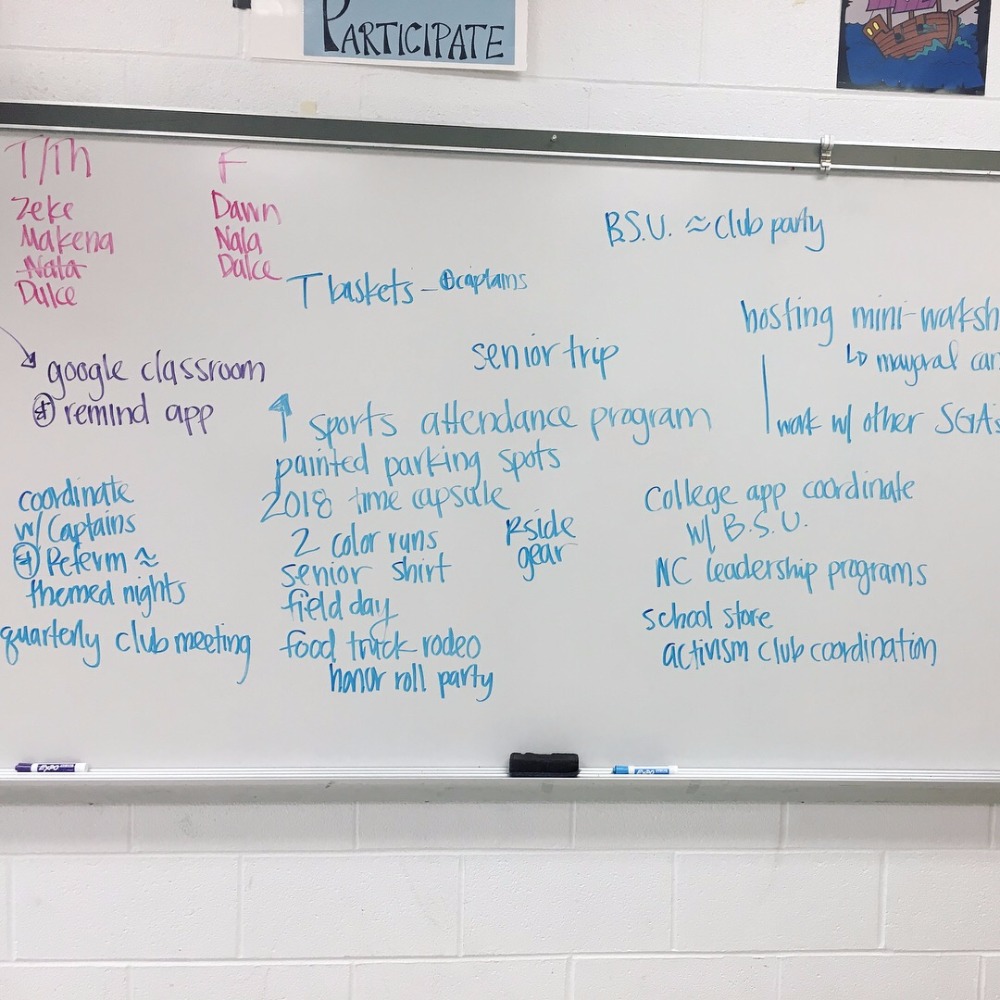 PARTICIPATE
T/Th
Zeke
Makena
Nala
Dulce
F
Dawn
Nala
Dulce
B.S.U. ≈ club party
T baskets - ⊕ captains
hosting mini-worksh
↳ mayoral can
work w/ other SGA's
senior trip
google classroom
⊕ remind app
↑ sports attendance program
painted parking spots
2018 time capsule
2 color runs
senior shirt
field day
food truck rodeo
honor roll party
Rside
gear
coordinate
w/ Captains
⊕ Peferm ≈
themed nights
quarterly club meeting
college app coordinate
w/ B.S.U.
NC leadership programs
school store
activism club coordination
EXPO
EXPO